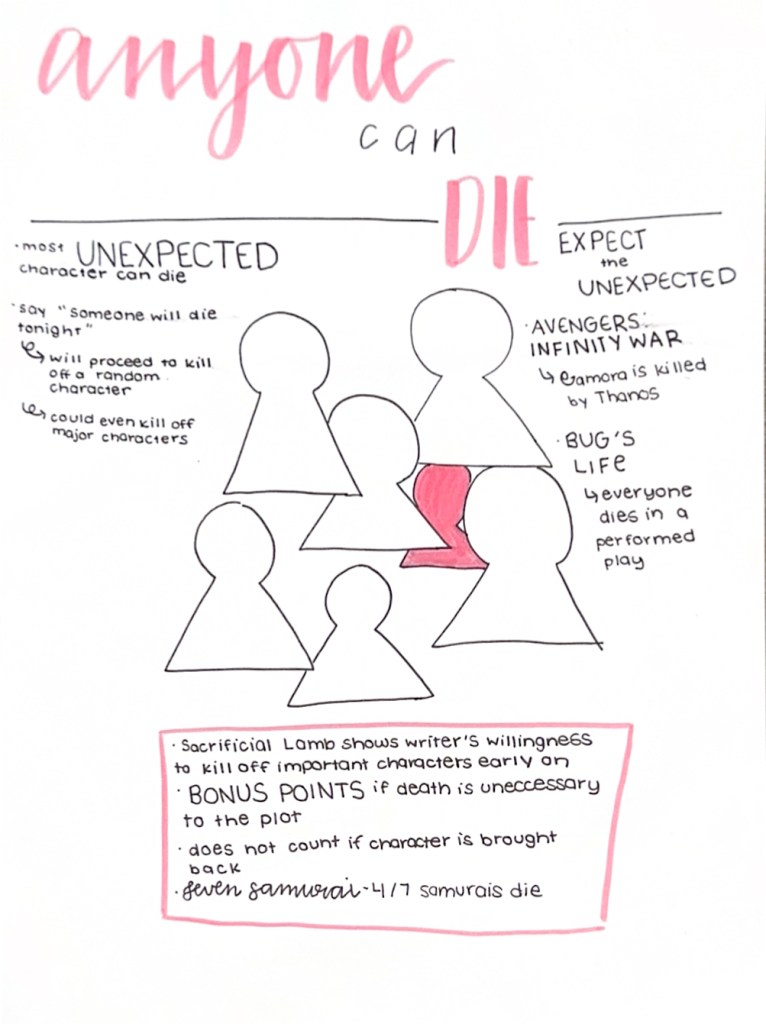 anyone
can
DIE
·most UNEXPECTED
character can die
·say "someone will die
tonight"
↳ will proceed to kill
off a random
character
↳ could even kill off
major characters
EXPECT
the
UNEXPECTED
·AVENGERS:
INFINITY WAR
↳ Gamora is killed
by Thanos
·BUG'S
LIFE
↳ everyone
dies in a
performed
play
·Sacrificial Lamb shows writer's willingness
to kill off important characters early on
·BONUS POINTS if death is uneccessary
to the plot
·does not count if character is brought
back
·seven samurai-4/7 samurais die